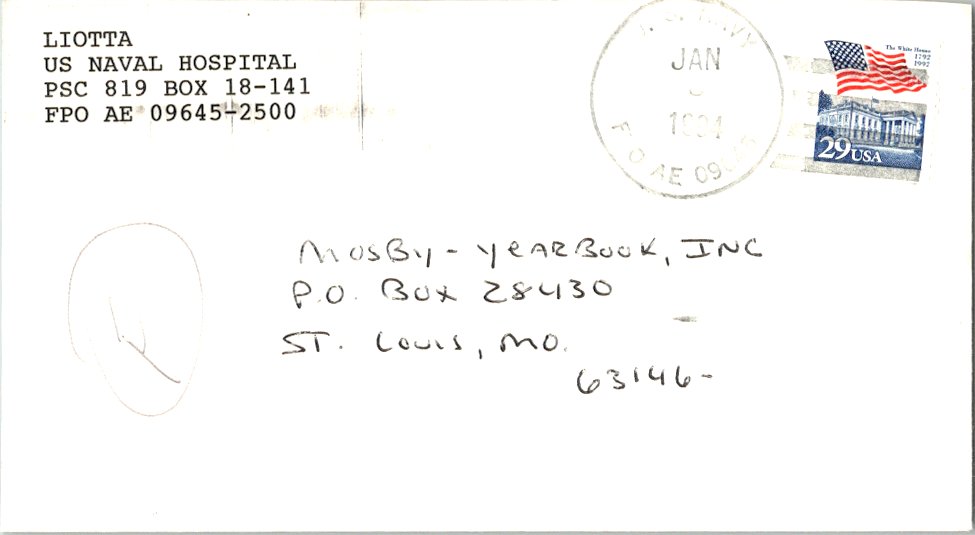 LIOTTA
US NAVAL HOSPITAL
PSC 819 BOX 18-141
FPO AE 09645-2500
NAVY
JAN
FPO AE
The White House
1792
1992
29 USA
MOSBY - YEARBOOK, INC
P.O. BOX 28430
ST. LOUIS, MO.
63146-